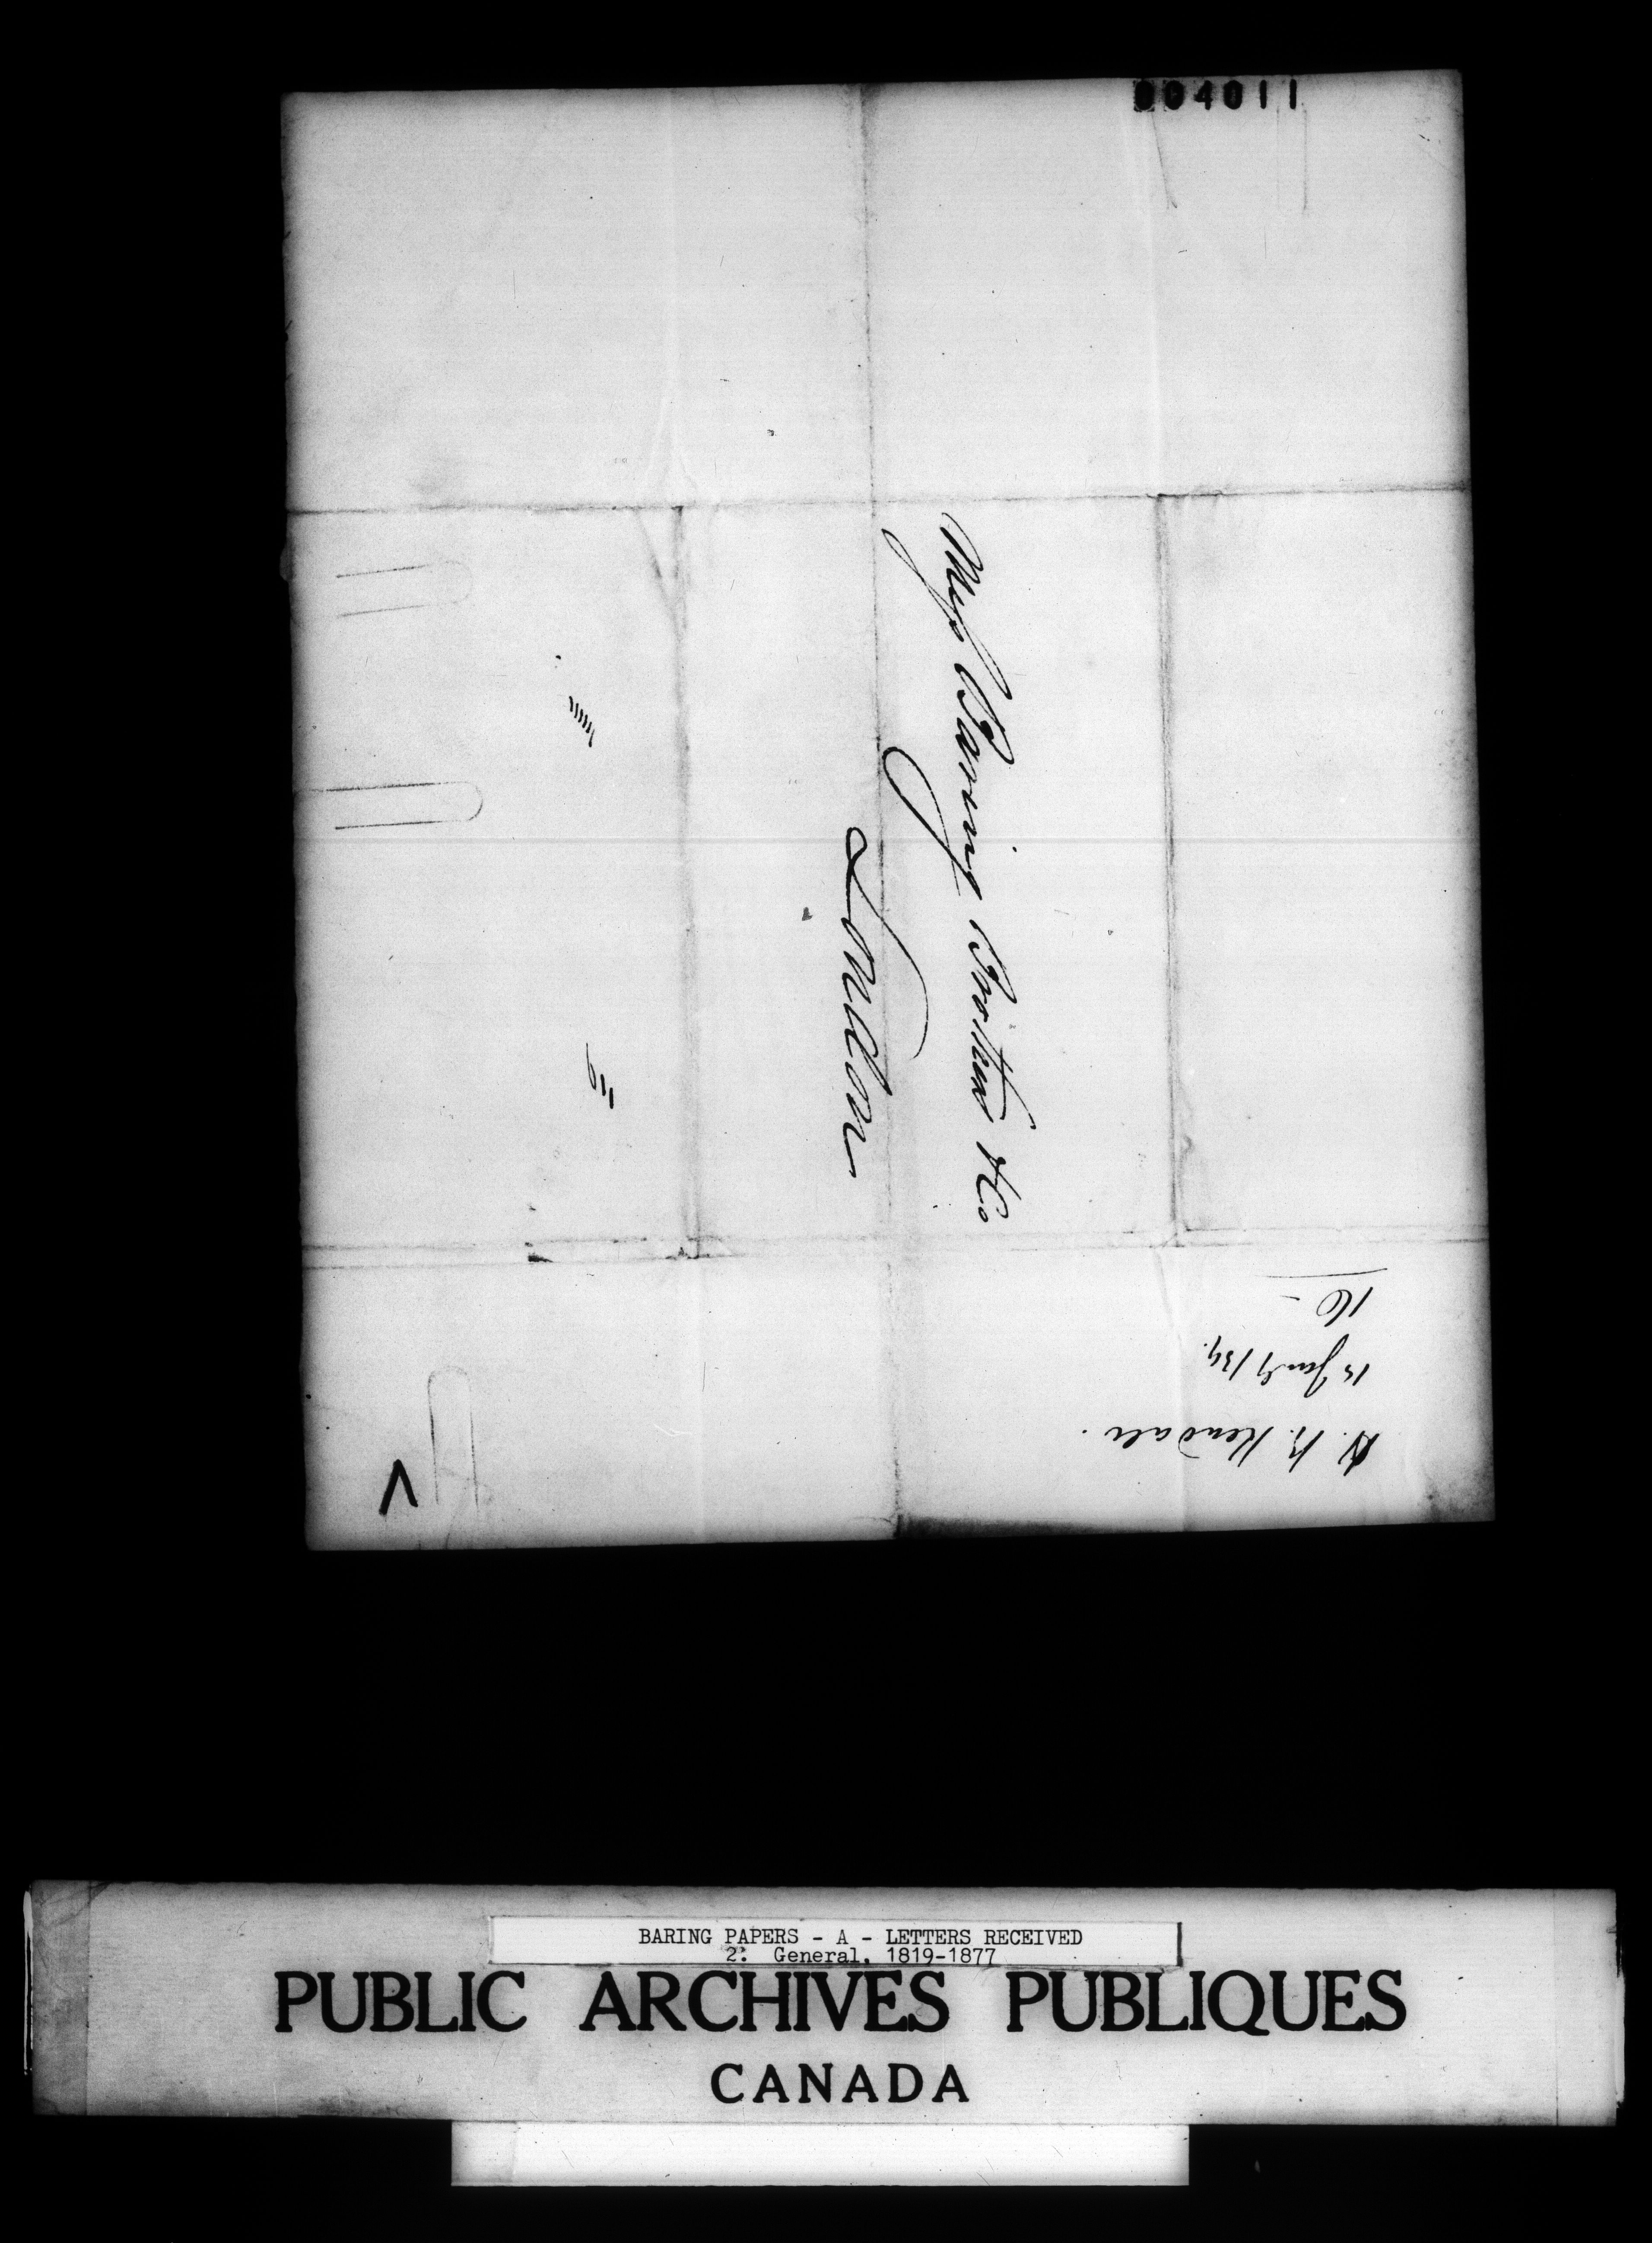 004011
Messrs Baring Brothers & Co
London
W. N. Kendall.
BARING PAPERS - A - LETTERS RECEIVED
2. General, 1819-1877
PUBLIC ARCHIVES PUBLIQUES
CANADA